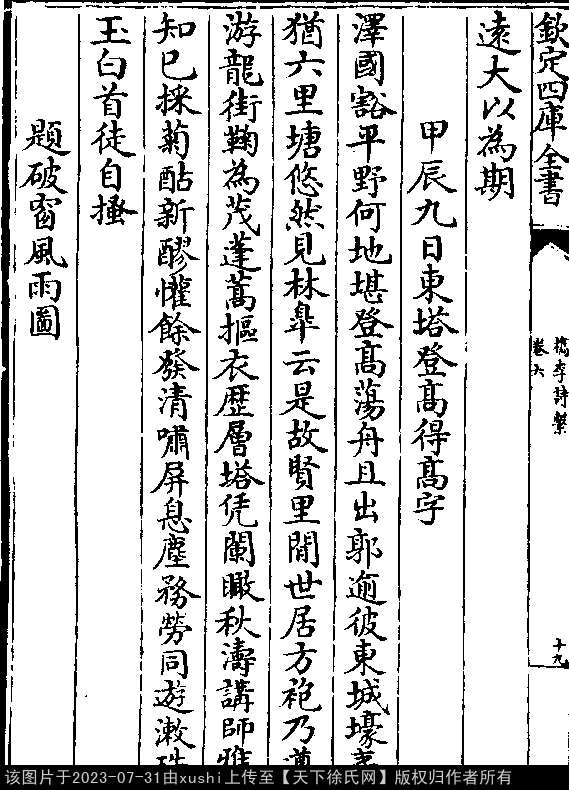 欽定四庫全書
檇李詩繫
卷六
十九
遠大以為期
甲辰九日東塔登髙得髙字
澤國豁平野何地堪登髙蕩舟且出郭迤彼東城壕
猶六里塘悠然見林臯云是故賢里閒世居方袍乃
游龍街鞠為茂蓬蒿摳衣歴層塔凭闌瞰秋濤講師雅
知已採菊酤新醪懽餘發清嘯屏息塵務勞同遊漱珠
玉白首徒自搔
題破窗風雨圖
该图片于2023-07-31由xushi上传至【天下徐氏网】版权归作者所有